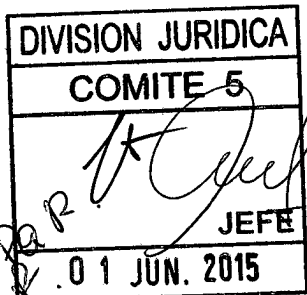 DIVISION JURIDICA
COMITE 5
JEFE
.0 1 JUN. 2015